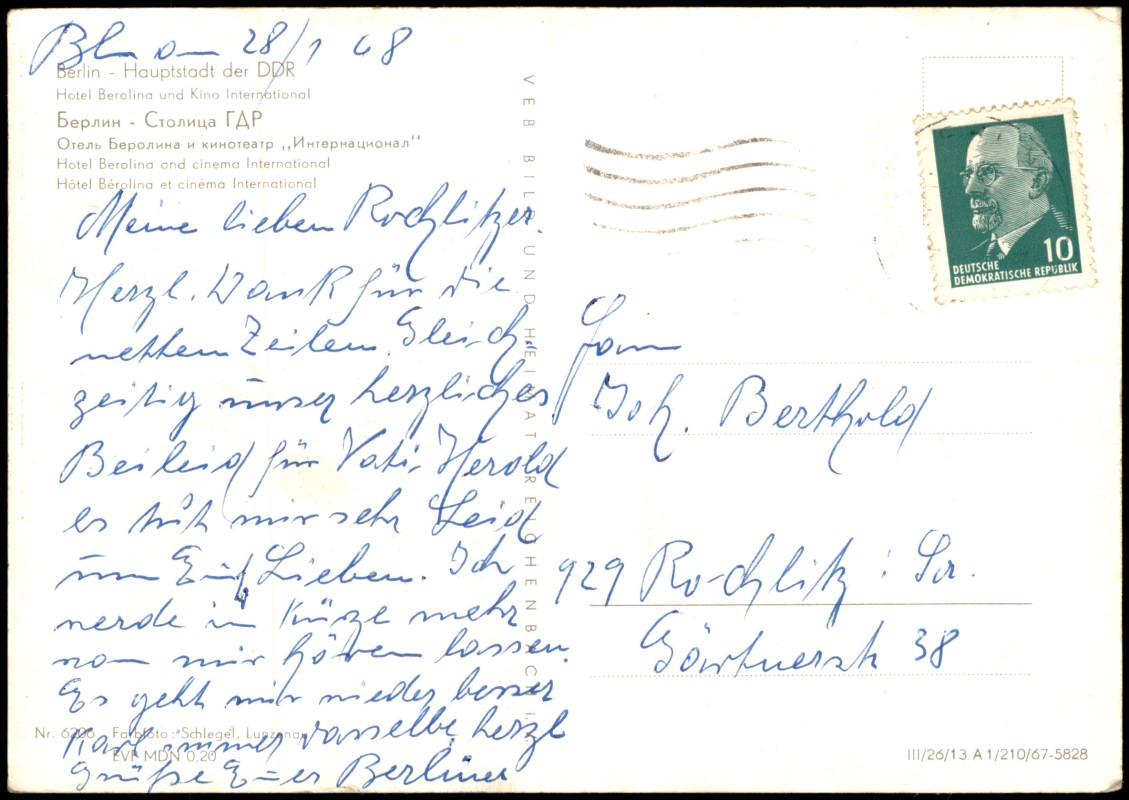 Bln am 28/1 68
Berlin - Hauptstadt der DDR
Hotel Berolina und Kino International
Берлин - Столица ГДР
Отель Беролина и кинотеатр ,,Интернационал"
Hotel Berolina and cinema International
Hôtel Bérolina et cinéma International
Meine lieben Rochlitzer.
Herzl. Dank für die
netten Zeilen. Gleich-
zeitig unser herzliches
Beileid für Vati Herold
es tut mir sehr Leid
um Euch Lieben. Ich
werde in Kürze mehr
von mir hören lassen.
Es geht mir wieder besser
Karl immer dasselbe, herzl
Grüße Euer Berliner
Nr. 6206 Farbfoto: Schlegel, Lunzenau
EVP MDN 0,20
VEB BILD UND HEIMAT REICHENBACH i.
DEUTSCHE
DEMOKRATISCHE REPUBLIK
10
Fam
Joh. Berthold
929 Rochlitz i Sa.
Gärtnerstr 38
III/26/13 A 1/210/67-5828